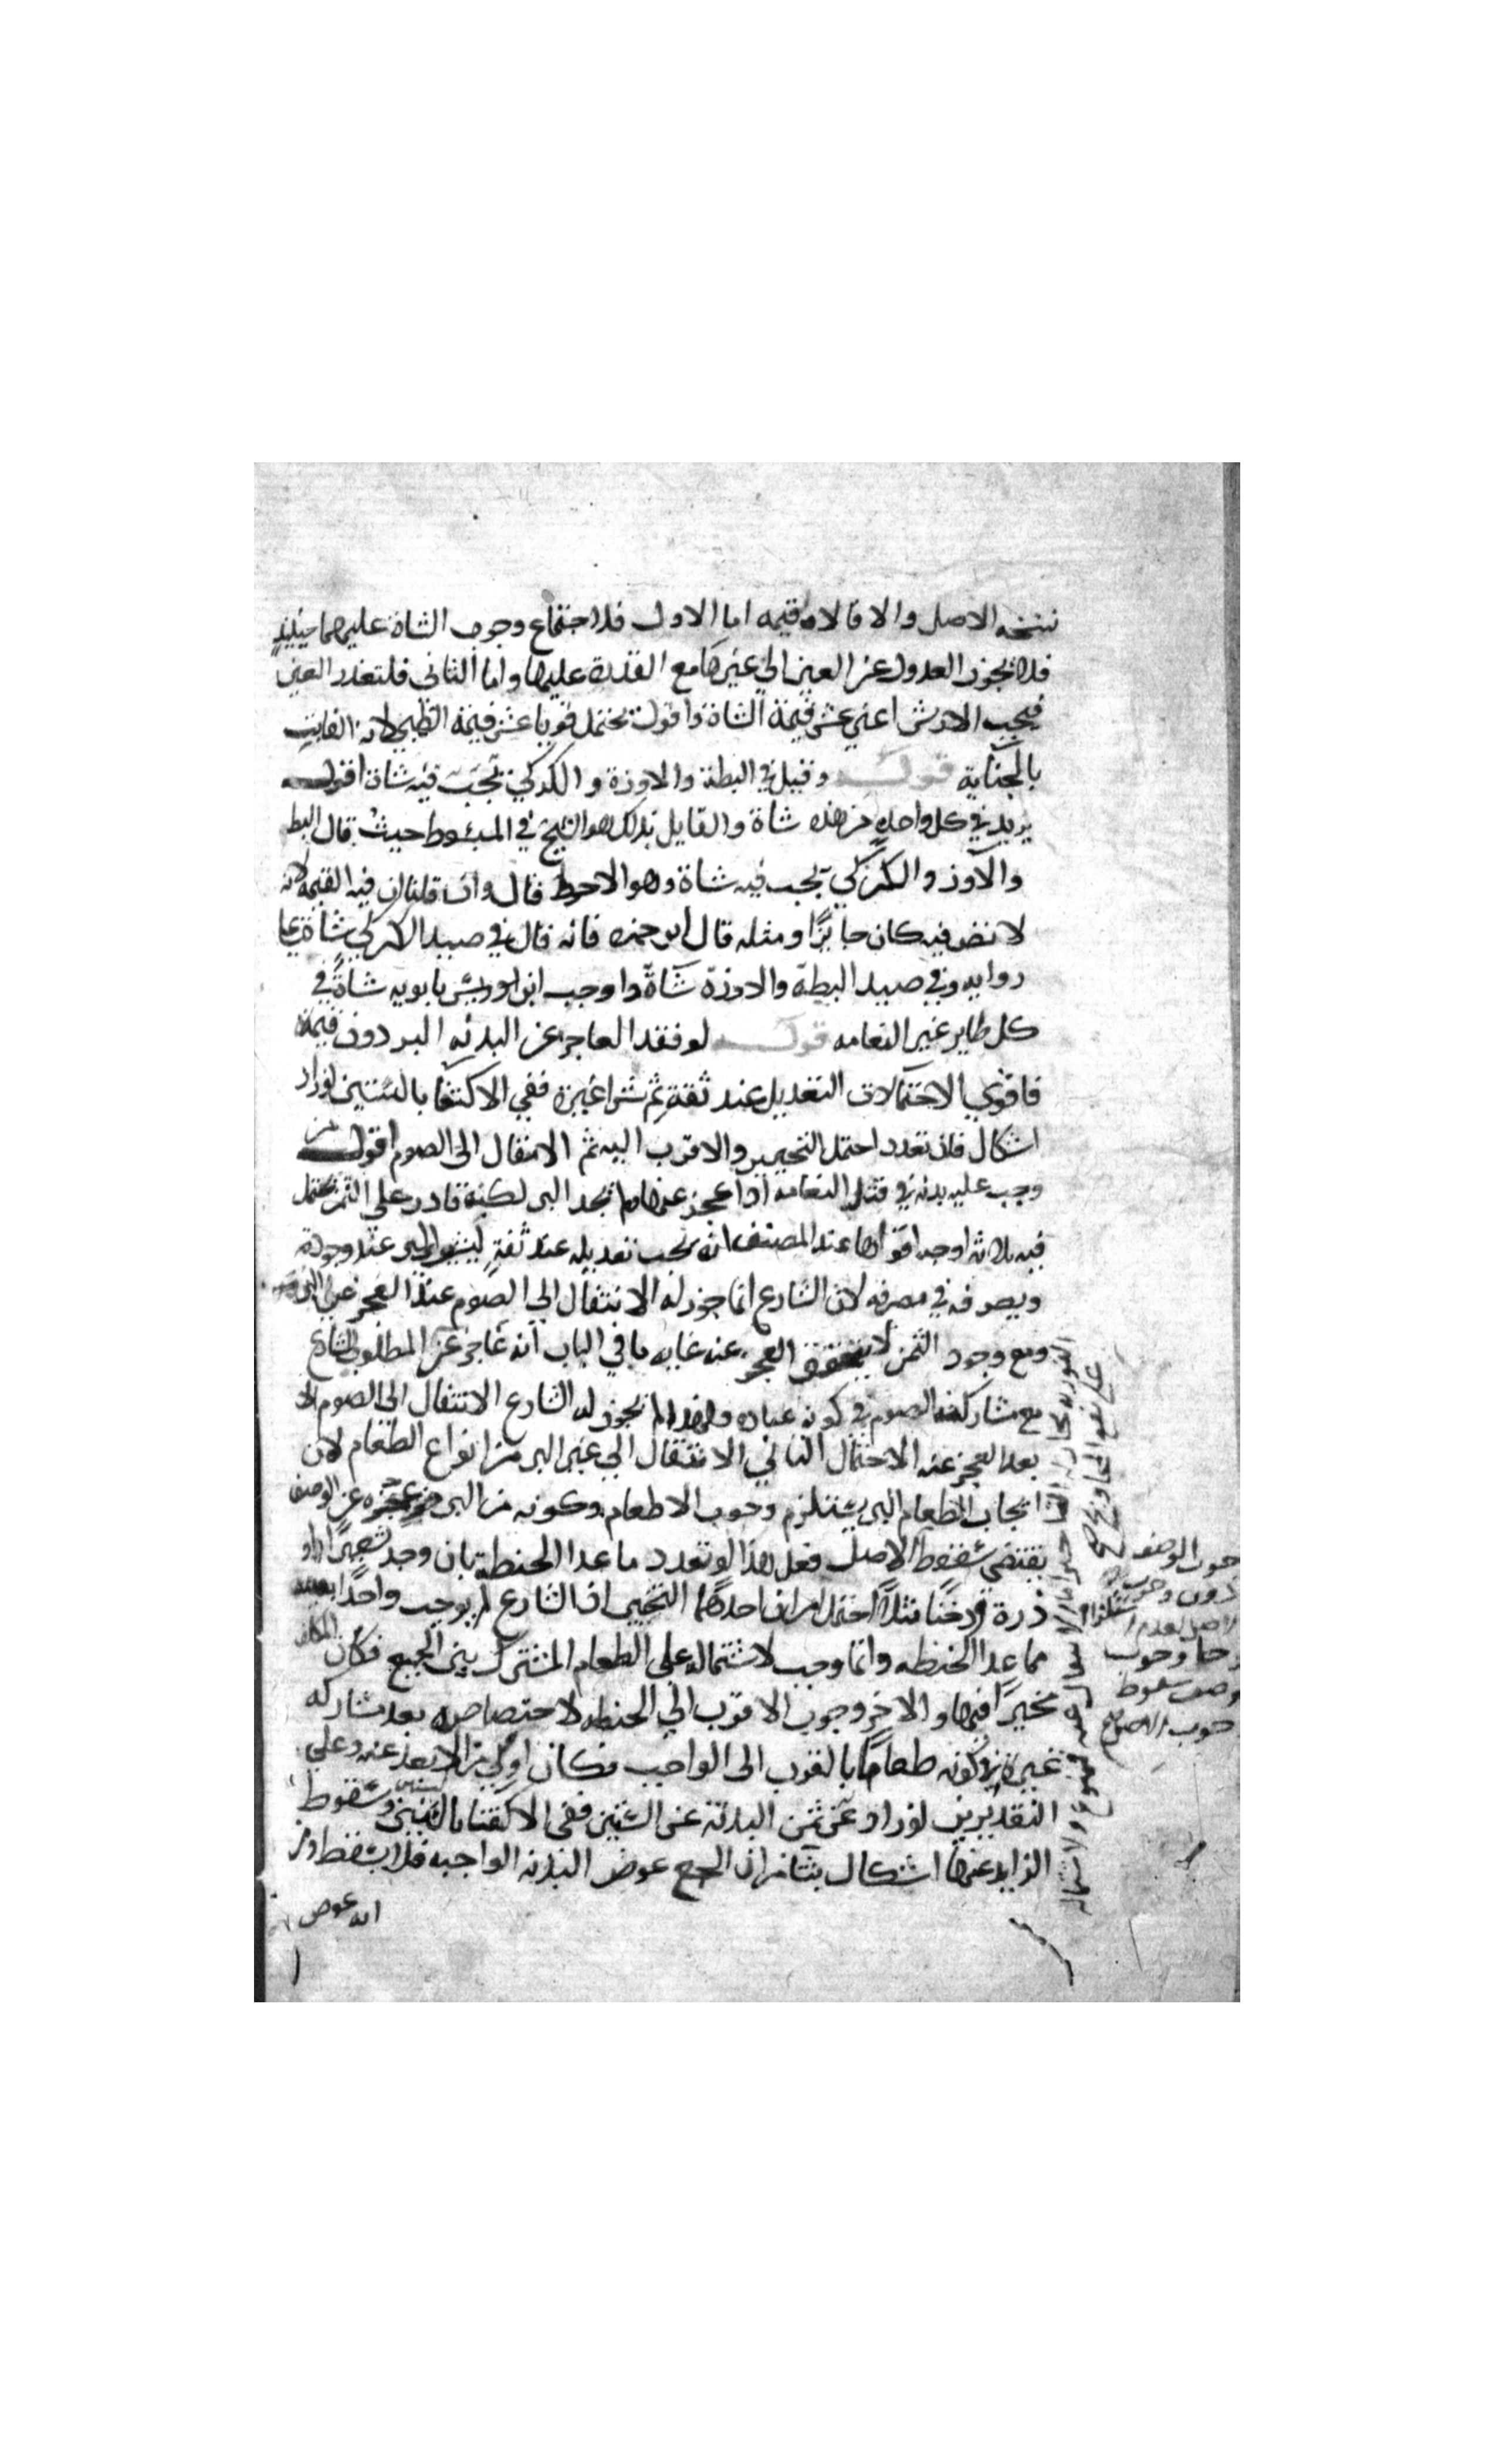 نسخه الاصل والا فالاوقيمه اما الاول فلاجتماع وجوب الشاة عليهما حينيذ
فلا يجوز العدول عن العين الي غيرها مع القدرة عليها واما الثاني فلتعذر العين
فيجب الارش اعني عشر قيمة الشاة واقول يحتمل قويا عشر قيمة الظبي لانه الفايت
بالجناية قوله وقيل في البطة والاوزة والكركي يجب فيه شاة اقول
يريد في كل واحد من هذه شاة والقايل بذلك هو الشيخ في المبسوط حيث قال البط
والاوز والكركي يجب فيه شاة وهو الاحوط قال وان قلنا ان فيه القيمة لانه
لا نص فيه كان جايزًا ومثله قال ابن حمزه فانه قال في صيد الكركي شاة
روايه وفي صيد البطة والاوزة شاة واوجب ابن بابويه شاة في
كل طاير غير النعامه قوله لو فقد العاجز عن البدنه البر دون قيمته
فاقوي الاحتمالات التعديل عند ثقة ثم شراغيره ففي الاكتفا بالستين لوزاد
اشكال فان تعدد احتمل التخيير والاقرب اليه ثم الانتقال الى الصوم اقول من
وجب عليه بدنه في قتل النعامه اذا عجز عنها ولم يجد البر لكنه قادر على الثمن يحتمل
فيه ثلاثه اوجه اقواها عند المصنف انه يجب تعديله عند ثقة ليشتري البر عند وجوده
ويصرفه في مصرفه لان الشارع انما جوز له الانتقال الي الصوم عند العجز عن البر
ومع وجود الثمن لا يتحقق العجز عنه غايه ما في الباب انه عاجز عن المطلوب للشارع
مع مشاركته الصوم في كونه عباده ولهذا لم يجوز له الشارع الانتقال الى الصوم الا
بعد العجز عنه الاحتمال الثاني الانتقال الي غير البر من انواع الطعام لان
ايجاب اطعام البر يستلزم وجوب الاطعام وكونه من البر وعجزه عن الوصف
يقتضي سقوط الاصل فعلى هذا لو تعدد ماعدا الحنطة بان وجد شعيرًا او
ذرة ودخنًا مثلًا احتمل امران احدهما التخيير اذ الشارع لم يوجب واحدًا بعينه
مما عدا الحنطه وانما وجب لاشتماله على الطعام المشترك بين الجميع فكان المكلف
مخيرًا فيها والاخر وجوب الاقرب الي الحنطه لاختصاصه بعد مشاركه
غيره في كونه طعامًا بالقرب الى الواجب فكان اولي من الابعد عنه وعلي
التقديرين لو زاد عن ثمن البدنة عن الستين ففي الاكتفا بالستين وسقوط
الزايد عنها اشكال ينشا من ان الجميع عوض البدنه الواجبه فلا يسقط ومن
انه عوض
وجوب الوصف
دون وجوب
وجوب
وصف سقوط
وجوب الاصل